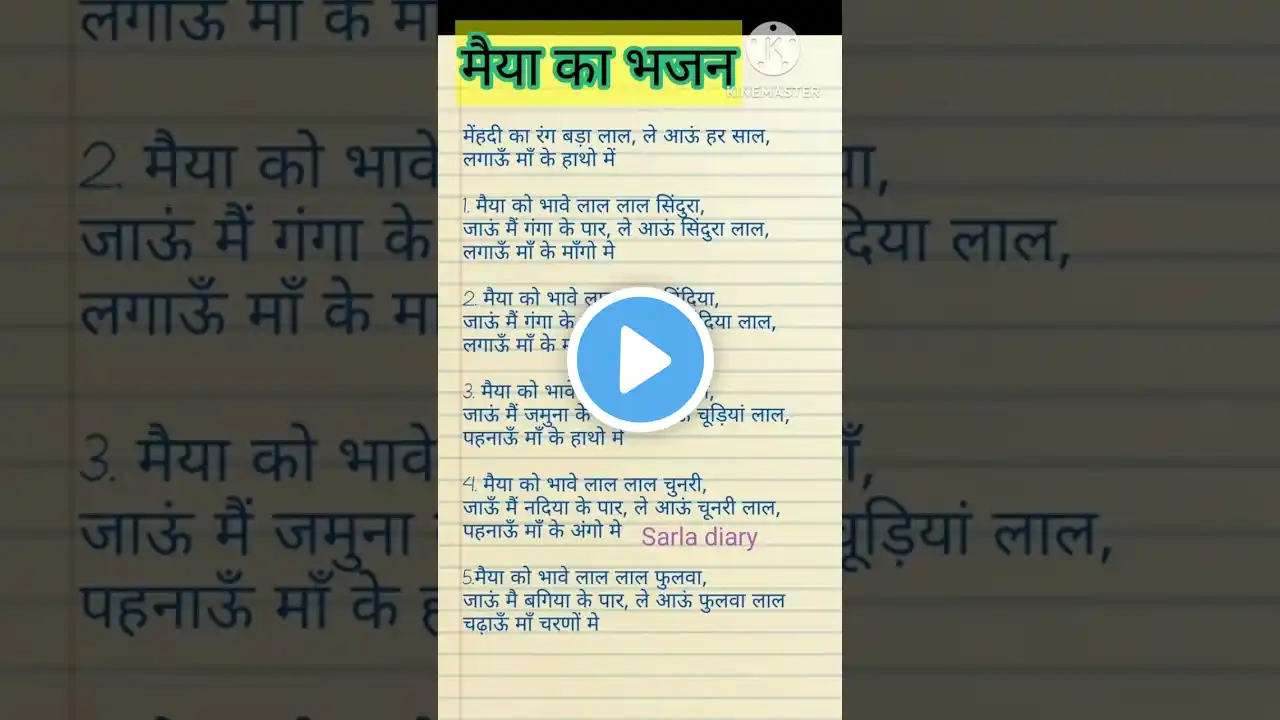 मैया का भजन
KINEMASTER
मेंहदी का रंग बड़ा लाल, ले आऊं हर साल,
लगाऊँ माँ के हाथो में
1. मैया को भावे लाल लाल सिंदुरा,
जाऊं मैं गंगा के पार, ले आऊं सिंदुरा लाल,
लगाऊँ माँ के माँगो मे
2. मैया को भावे बिंदिया,
जाऊं मैं गंगा के लाल,
लगाऊँ माँ के
3. मैया को
जाऊं मैं जमुना के चूड़ियां लाल,
पहनाऊँ माँ के हाथो मे
4. मैया को भावे लाल लाल चुनरी,
जाऊँ मैं नदिया के पार, ले आऊं चूनरी लाल,
पहनाऊँ माँ के अंगो मे
Sarla diary
5.मैया को भावे लाल लाल फुलवा,
जाऊं मै बगिया के पार, ले आऊं फुलवा लाल
चढ़ाऊँ माँ चरणों मे
लगाऊँ माँ के हाथो में
2. मैया को भावे
जाऊं मैं गंगा के
लगाऊँ माँ के
3. मैया को भावे
जाऊं मैं जमुना
पहनाऊँ माँ के
लाल,
लाल,